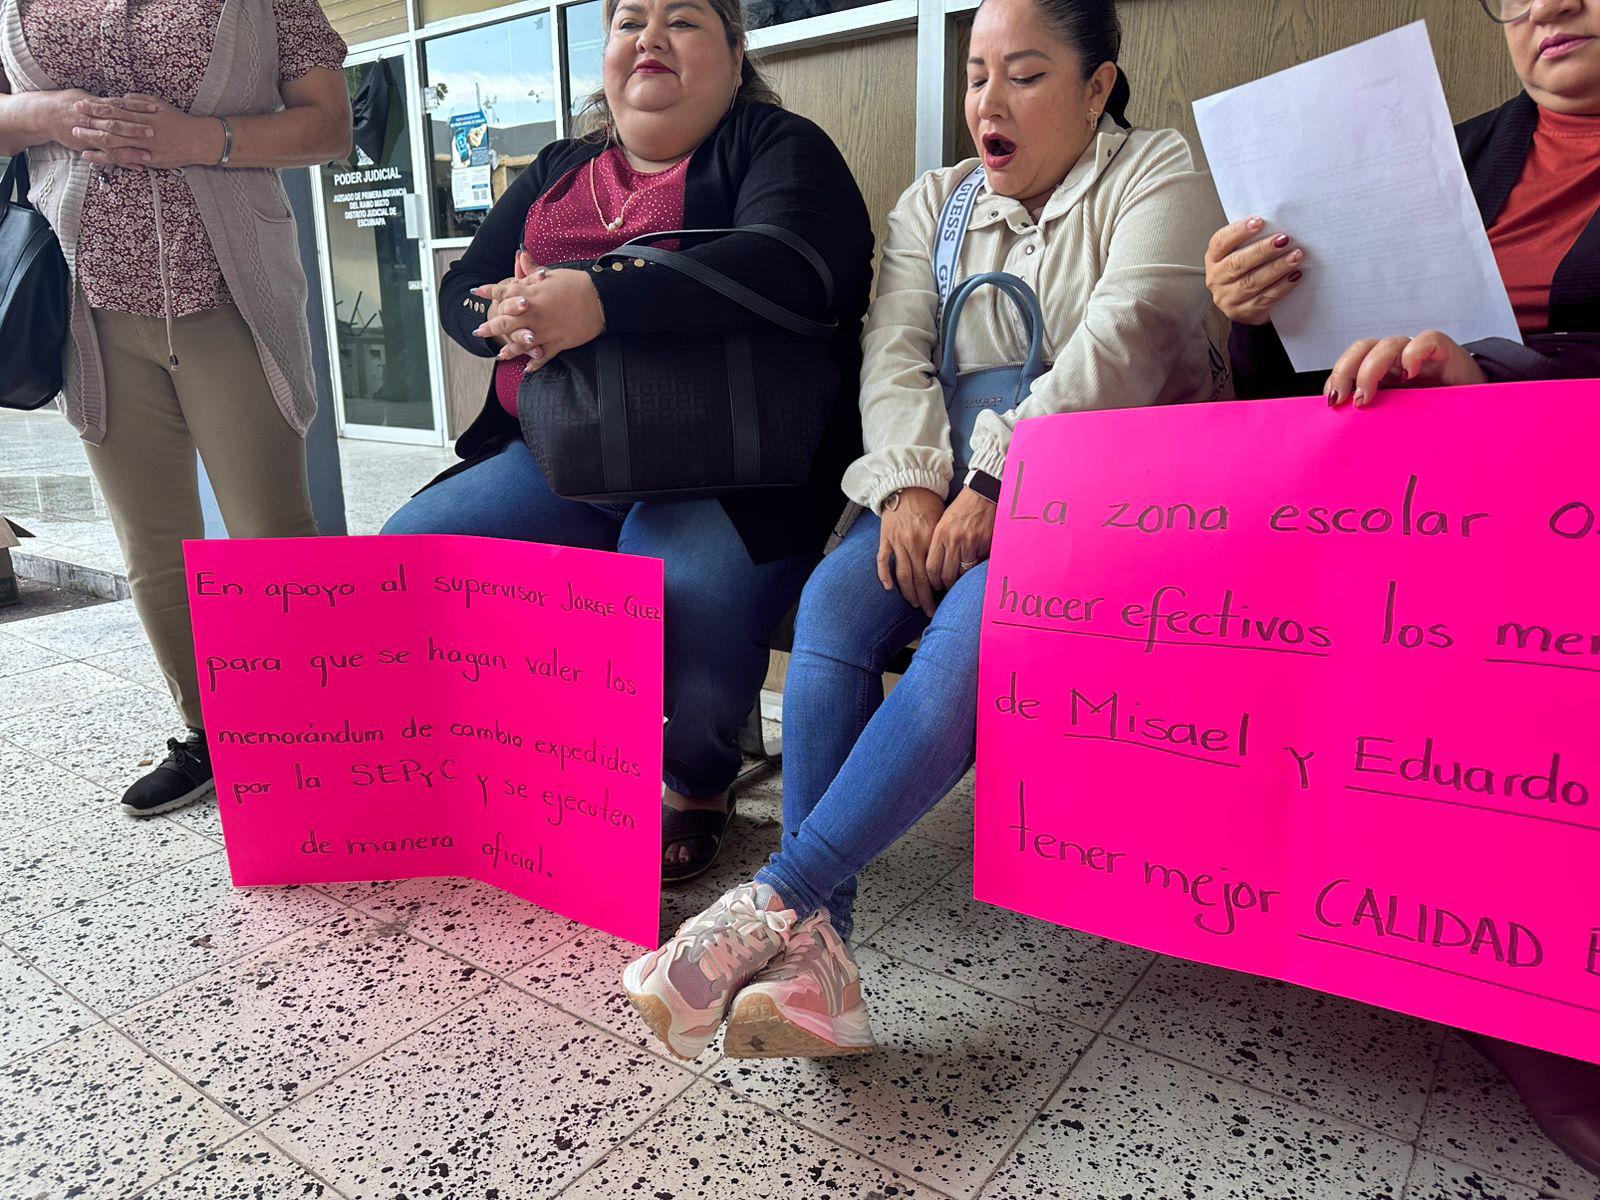 PODER JUDICIAL
JUZGADO DE PRIMERA INSTANCIA
DEL RAMO MIXTO
DISTRITO JUDICIAL DE
ESCUINAPA
GUESS
En apoyo al supervisor JORGE GLEZ
para que se hagan valer los
memorándum de cambio expedidos
por la SEPyC y se ejecuten
de manera oficial.
La zona escolar
hacer efectivos los
de Misael y Eduardo
tener mejor CALIDAD